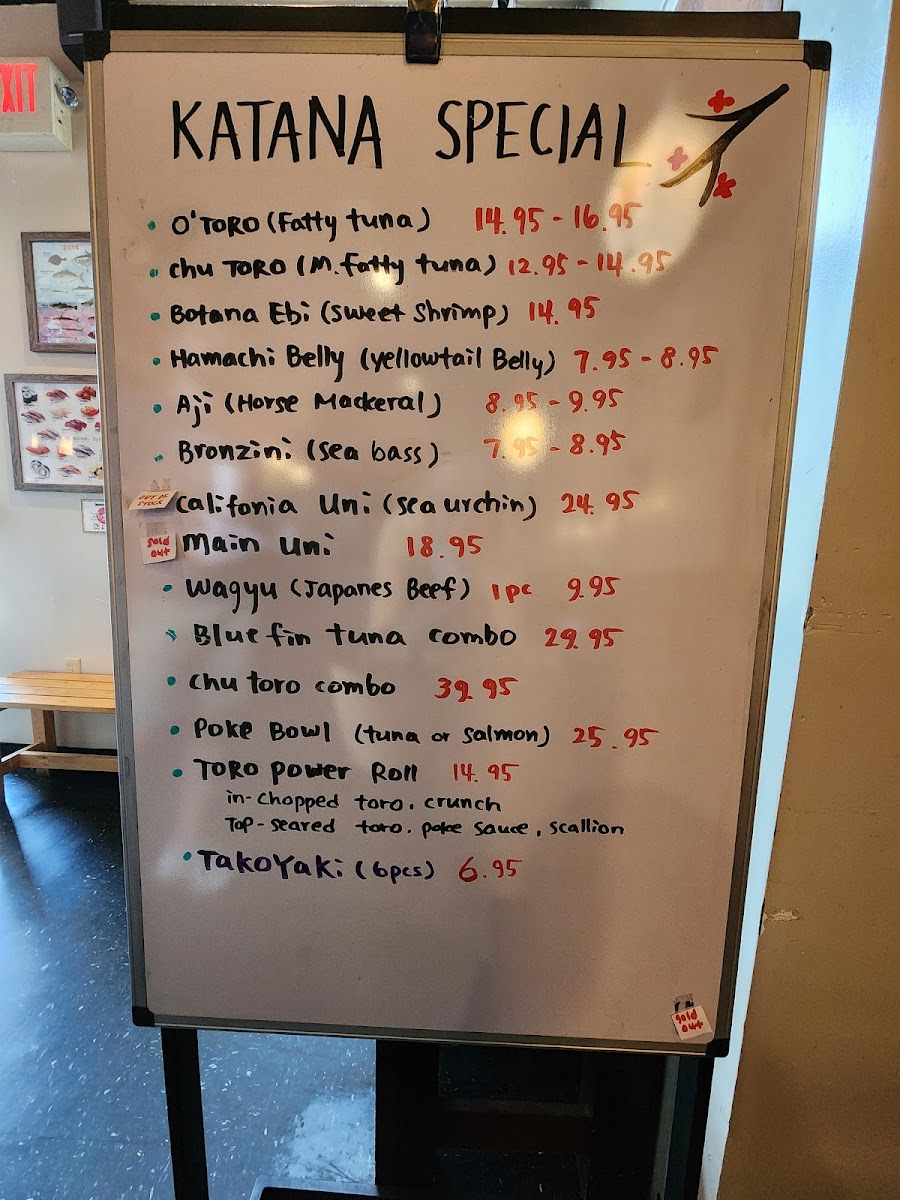 EXIT
KATANA SPECIAL
2014
• O'TORO (Fatty tuna) 14.95 - 16.95
• chu TORO (M.fatty tuna) 12.95 - 14.95
• Botana Ebi (sweet shrimp) 14.95
• Hamachi Belly (yellowtail Belly) 7.95 - 8.95
• Aji (Horse Mackeral) 8.95 - 9.95
• Bronzini (sea bass) 7.95 - 8.95
OUT OF STOCK
Califonia Uni (sea urchin) 24.95
Sold out
Main Uni 18.95
• Wagyu (Japanes Beef) 1pc 9.95
• Bluefin tuna combo 29.95
• Chu toro combo 39.95
• Poke Bowl (tuna or salmon) 25.95
• TORO Power Roll 14.95
in-chopped toro. crunch
Top-seared toro. poke sauce, scallion
• Takoyaki (6pcs) 6.95
Sold out